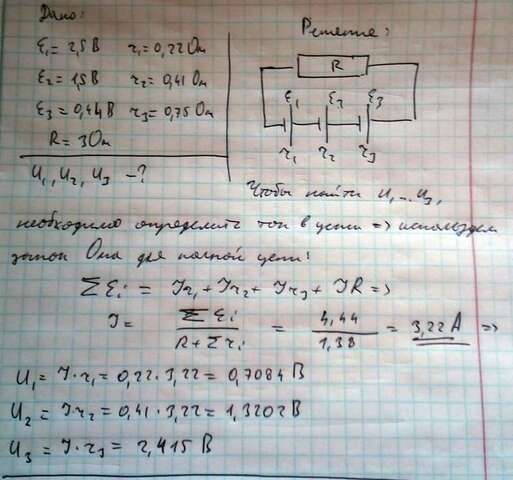 Дано:
ε₁ = 2,5 В r₁ = 0,22 Ом
ε₂ = 1,5 В r₂ = 0,41 Ом
ε₃ = 0,44 В r₃ = 0,75 Ом
R = 3 Ом
U₁, U₂, U₃ - ?
Решение:
R
ε₁ ε₂ ε₃
r₁ r₂ r₃
Чтобы найти U₁...U₃,
необходимо определить ток в цепи => используем
закон Ома для полной цепи:
Σεᵢ = Ir₁ + Ir₂ + Ir₃ + IR =>
I = Σεᵢ / (R + Σrᵢ) = 4,44 / 1,38 = 3,22 A =>
U₁ = I · r₁ = 0,22 · 3,22 = 0,7084 В
U₂ = I · r₂ = 0,41 · 3,22 = 1,3202 В
U₃ = I · r₃ = 2,415 В